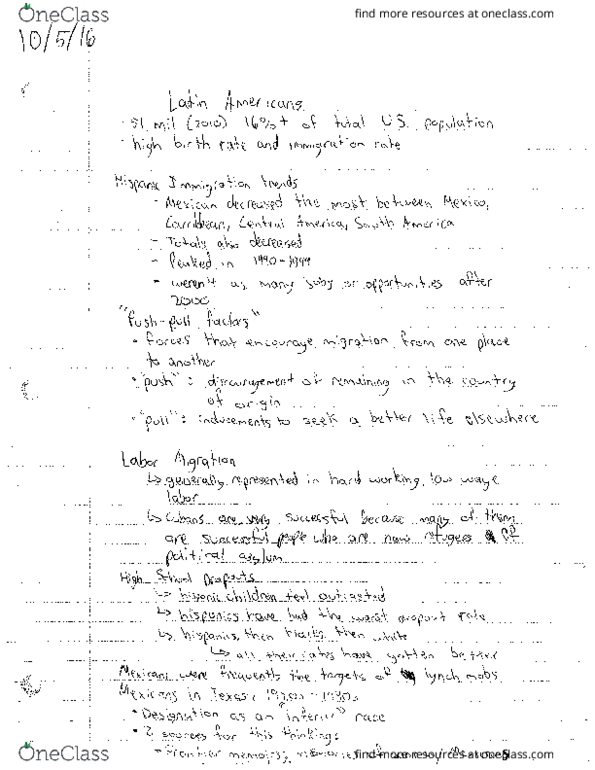 OneClass
find more resources at oneclass.com
10/5/16
Latin Americans
· 51 mil (2010) 16%+ of total U.S. population
· high birth rate and immigration rate
Hispanic Immigration trends
- Mexican decreased the most between Mexico,
Carribean, Central America, South America
- Totals also decreased
- Peaked in 1990-1999
- weren't as many jobs or opportunities after
2000
"Push-pull factors"
· forces that encourage migration from one place
to another
· "push": discouragement of remaining in the country
of origin
· "pull": inducements to seek a better life elsewhere
Labor Migration
↳ generally represented in hard working, low wage
labor
↳ Cubans are very successful because many of them
are successful people who are now refugees of
political asylum
High School Dropouts
↳ children feel
↳ hispanics have had the worst dropout rate
↳ hispanics, then blacks, then white
↳ all their rates have gotten better
Mexicans were frequently the targets of lynch mobs
Mexicans in Texas: 1920s - 1930s
· Designation as an "inferior" race
· 2 sources for this thinking:
- Frontier memoirs,
OneClass
find more resources at oneclass.com